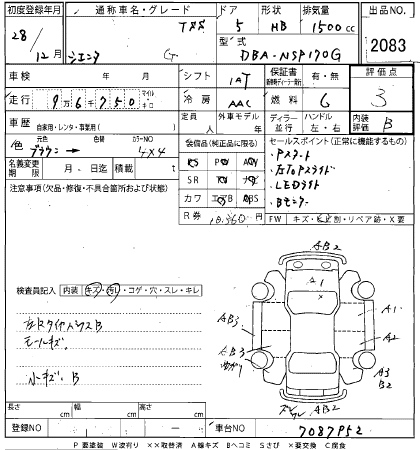 初度登録年月 通称車名・グレード ドア 形状 排気量 出品NO.
28/12月 シエンタ G 5 HB 1500cc 2083
型式 DBA-NSP170G
車検 年 月 シフト IAT 保証書 有・無 評価点
走行 9万6千750 マイル キロ 冷房 AAC 燃料 G 3
車歴 自家用・レンタ・事業用( ) 定員 人 外車モデル 年 ディーラー 並行 ハンドル 左・右 内装評価 B
色 ブラウン → 色替 カラーNO 4X4 装備品(純正に限る) セールスポイント(正常に機能するもの)
名義変更期限 月 日迄 積載 t PS PW AW
・Pスタート
・左右Pスライド
・LEDライト
・Bモニター
注意事項(欠品・修復・不具合箇所および状態) SR ナビ TV
カワ エアB ABS
R券 10,360円 FW キズ・割・リペア跡・X要
検査員記入 内装 キズ・汚れ・コゲ・穴・スレ・キレ
モールキズ
小キズ、B
AB2
A1
AB3
A1
A2
AB3
A3
B2
AB2
長さ cm 幅 cm 高さ cm
登録NO 車台NO 7087952
P 要塗装 W波有り ××取替済 A線キズ Bヘコミ Sさび ×要交換 C腐食